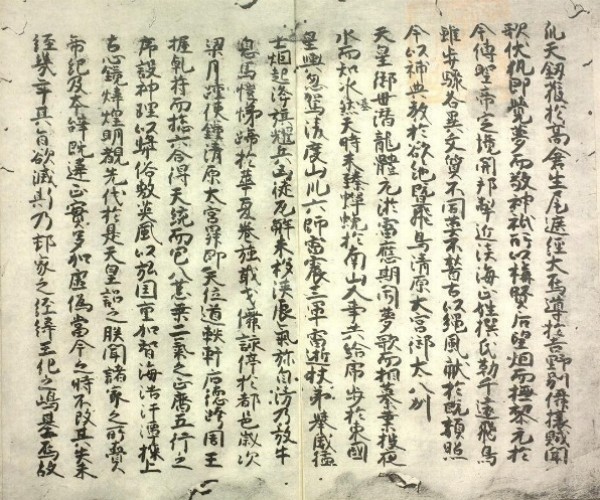 爪天釼獲於高倉生尾遮徑大烏導於吉野列儛攘賊聞
歌伏仇即覺夢而敬神祇所以稱賢后望烟而撫黎元於
今傳聖帝定境開邦制近淡海正姓撰氏勒于遠飛鳥
雖步驟各異文質不同莫不稽古以繩風猷於既頽照
今以補典教於欲絶曁飛鳥清原大宮御太八州
天皇御世潜龍體元洊雷應期聞夢歌而相纂業投夜
水而知承基然天時未臻蝉蛻於南山人事共給虎步於東國
皇輿忽駕浚度山川六師雷震三軍電逝杖矛擧威猛
士烟起絳旗耀兵凶徒瓦解未移浹辰氣沴自清乃放牛
息馬愷悌歸於華夏卷旌戢戈儛詠停於都邑歲次
梁月踵俠鍾清原大宮昇即天位道軼軒后德跨周王
握乾符而摠六合得天統而包八荒乘二氣之正齊五行之
序設神理以奬俗敷英風以弘國重加智海浩汗潭探上
古心鏡煒煌明覩先代於是天皇詔之朕聞諸家之所賷
帝紀及本辞既違正實多加虛偽當今之時不改其失未
經幾年其旨欲滅斯乃邦家之經緯王化之鴻基焉故